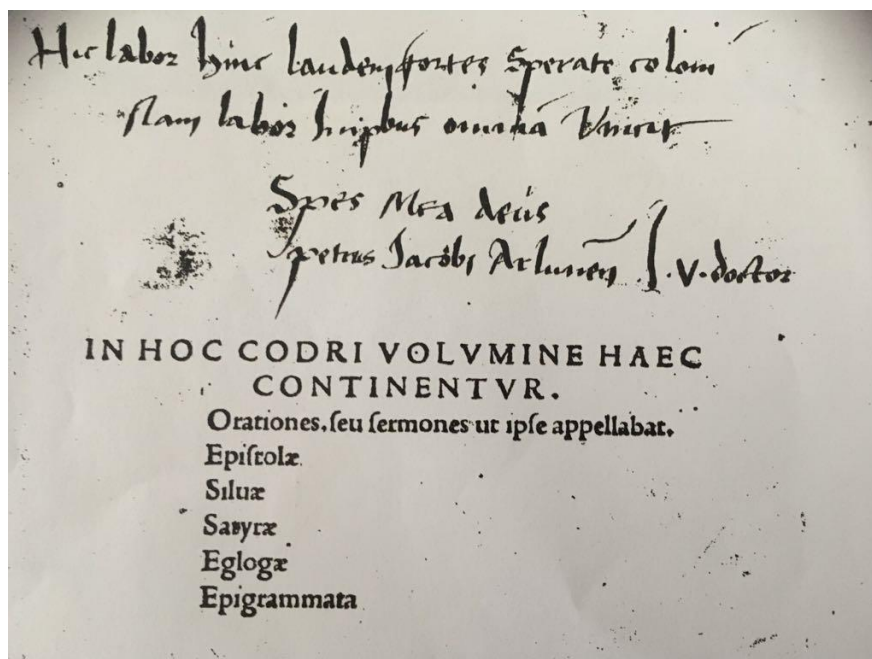 Hic labor hinc laudem fortes sperate coloni
Nam labor improbus omnia vincit
Spes Mea deus
petrus Jacobi Arlunen J.V.doctor
IN HOC CODRI VOLVMINE HAEC
CONTINENTVR.
Orationes, seu sermones ut ipse appellabat.
Epistolæ
Siluæ
Satyræ
Eglogæ
Epigrammata